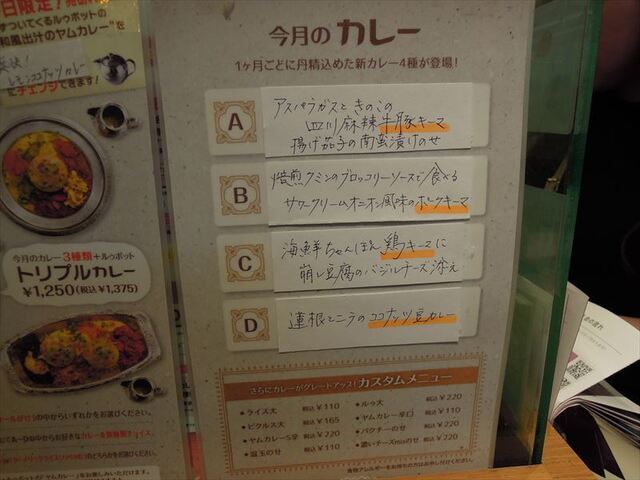 日限定!
すついてくるルゥポットの
和風出汁のヤムカレー"を
レモンココナッツカレー
にチェンジできます!
今月のカレー3種類+ルゥポット
トリプルカレー
¥1,250(税込¥1,375)
の中からいずれかをお選びください。
今月の カレー
1ヶ月ごとに丹精込めた新カレー4種が登場!
A
アスパラガスときのこの
四川麻辣牛豚キーマ
揚げ茄子の南蛮漬けのせ
B
焙煎クミンのブロッコリーソースで食べる
サワークリームオニオン風味のポークキーマ
C
海鮮ちゃんぽん鶏キーマに
崩し豆腐のバジルチーズ添え
D
蓮根とニラのココナッツ豆カレー
さらにカレーがグレードアップ! カスタムメニュー
・ライス大 税込¥110
・ピクルス大 税込¥165
・ヤムカレーS辛 税込¥220
・温玉のせ 税込¥110
・ルゥ大 税込¥220
・ヤムカレー辛口 税込¥110
・パクチーのせ 税込¥220
・濃いチーズmixのせ 税込¥220
食物アレルギーをお持ちの方はお申し付けください。